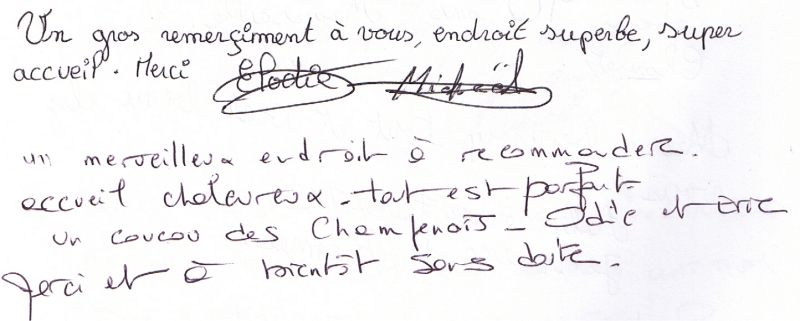 Un gros remerçiment à vous, endroit superbe, super
accueil. Merci Elodie Michaël
un merveilleux endroit à recommander.
accueil chaleureux - tout est parfait
un coucou des Champenois - Odile et Eric
Merci et à bientôt sans doute.